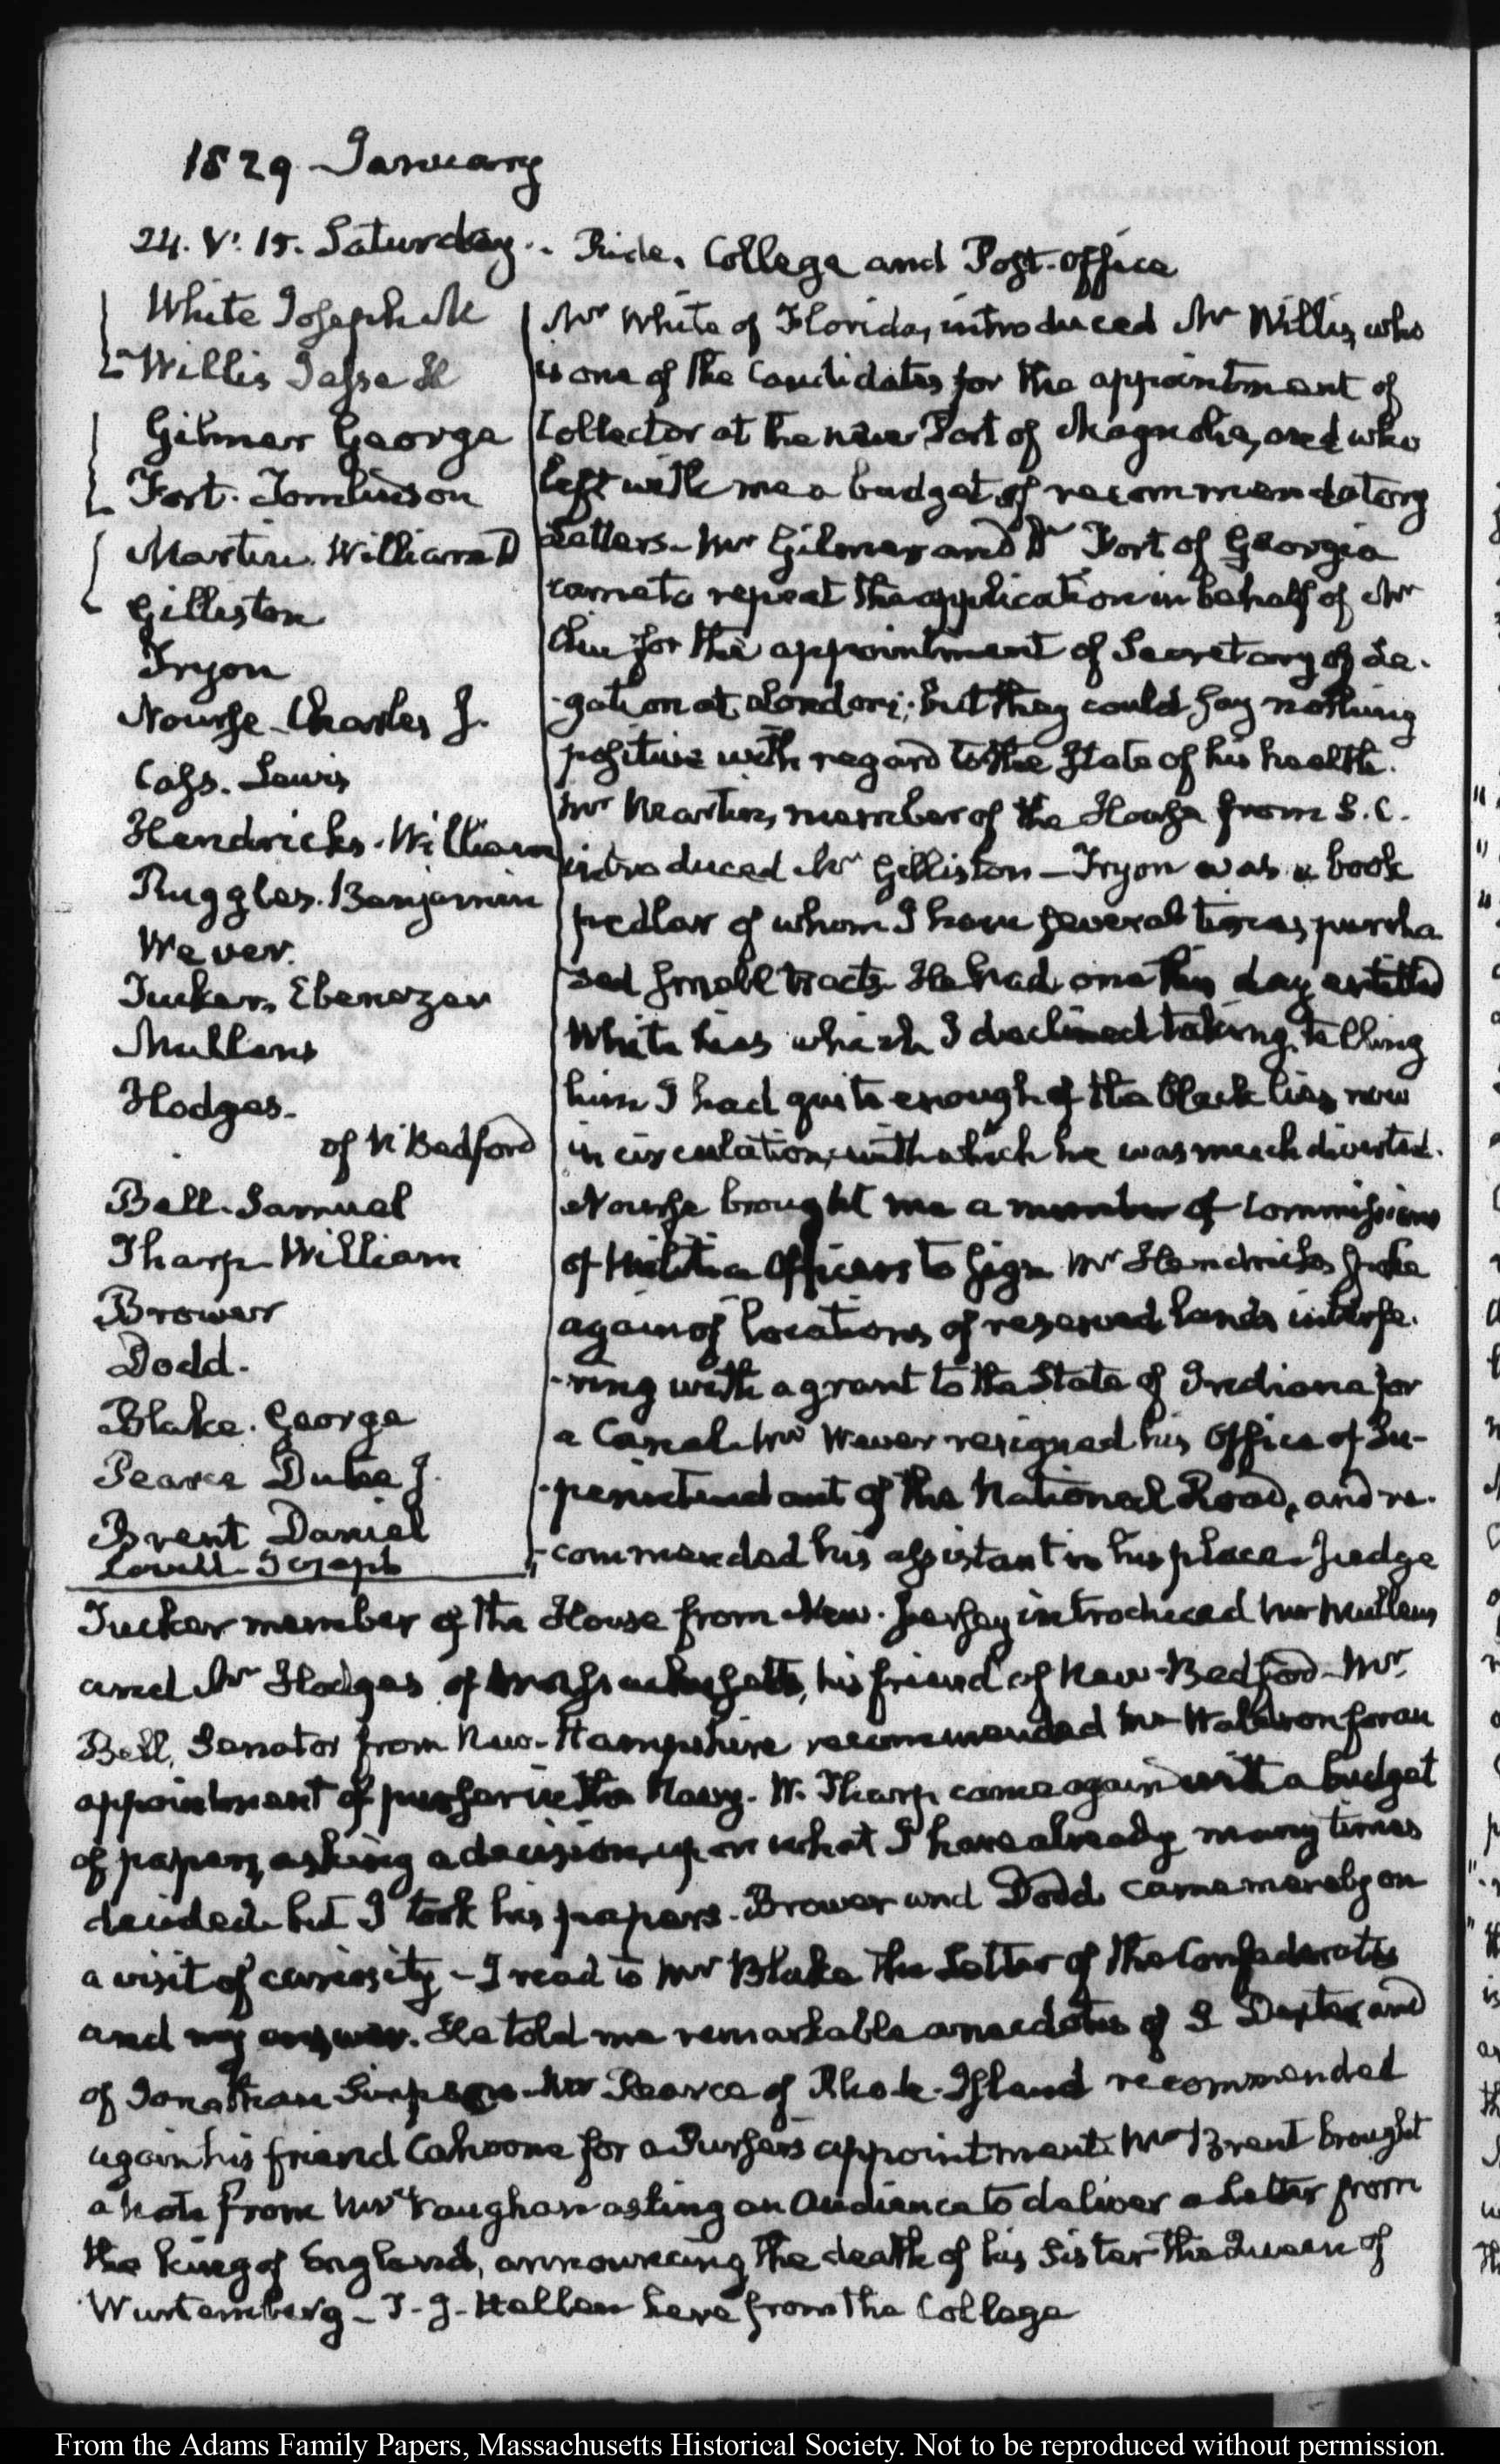 1829 January
24. V. 15. Saturday. Ride. College and Post-office
White Joseph M
Willis Jesse H
Gilmer George
Fort. Tomlinson
Martin. William D
Gilliston
Tryon
Nourse. Charles J.
Cass. Lewis
Hendricks. William
Ruggles. Benjamin
Wever.
Tucker, Ebenezer
Mullens
Hodges.
of N Bedford
Bell. Samuel
Tharp William
Brower
Dodd.
Blake. George
Pearce Dutee J.
Brent Daniel
Lovell Joseph
Mr White of Florida, introduced Mr Willis, who
is one of the Candidates for the appointment of
Collector at the new Port of Magnolia, and who
left with me a budget of recommendatory
Letters. Mr Gilmer and Dr Fort of Georgia
came to repeat the application in behalf of Mr
for the appointment of Secretary of Le-
-gation at London; but they could say nothing
positive with regard to the State of his health.
Mr Martin, member of the House from S. C.
introduced Mr Gilliston — Tryon was a book
pedlar of whom I have several times purcha
sed small tracts. He had one this day entitled
White lies which I declined taking, telling
him I had quite enough of the black lies now
in circulation, with which he was much diverted.
Nourse brought me a number of Commissions
of Militia Officers to sign. Mr Hendricks spoke
again of locations of reserved lands interfe-
-ring with a grant to the State of Indiana for
a Canal. Mr Wever resigned his Office of Su-
-perintendant of the National Road, and re-
-commended his assistant in his place. Judge
Tucker member of the House from New-Jersey introduced Mr Mullens
and Mr Hodges of Massachusetts, his friend of New-Bedford. Mr
Bell, Senator from New-Hampshire recommended Mr Waldron for an
appointment of purser in the Navy. W. Tharp came again with a budget
of papers, asking a decision upon what I have already many times
decided but I took his papers. Brower and Dodd came merely on
a visit of curiosity — I read to Mr Blake the Letter of the Confederates
and my answer. He told me remarkable anecdotes of S Dexter and
of Jonathan Simpson. Mr Pearce of Rhode-Island recommended
again his friend Cahoone for a Pursers appointment. Mr Brent brought
a Note from Mr Vaughan asking an Audience to deliver a Letter from
the king of England, announcing the death of his Sister the Queen of
Wurtemberg — T. J. Hellen here from the College
From the Adams Family Papers, Massachusetts Historical Society. Not to be reproduced without permission.